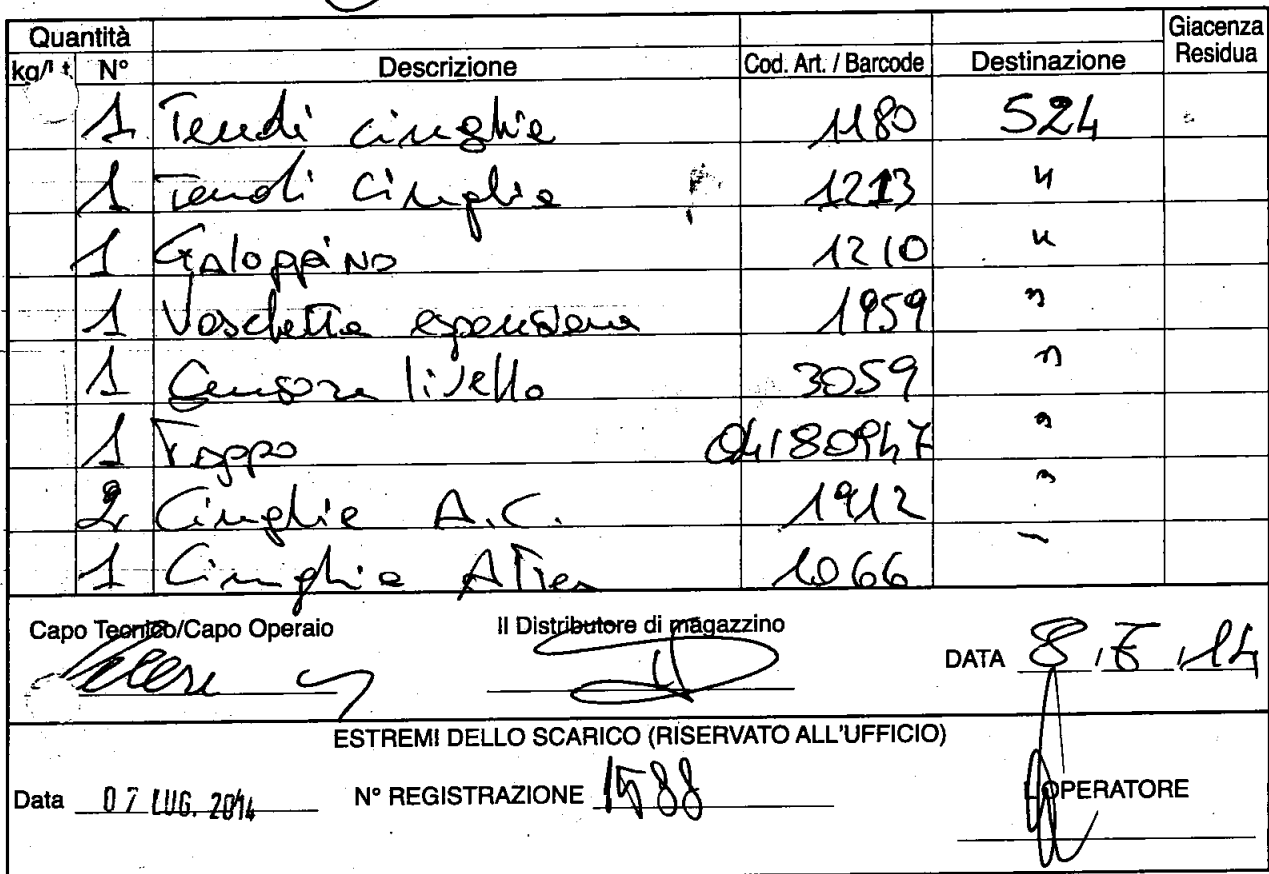 Quantità Giacenza
kg/l t N° Descrizione Cod. Art. / Barcode Destinazione Residua
1 Tendi cinghie 1180 524
1 Tendi Cinghie 1213 "
1 Galoppino 1210 "
1 Vaschetta espansione 1959 "
1 Censore livello 3059 "
1 Tappo 04180947 "
2 Cinghie A.C. 1912 "
1 Cinghie Alter 1066
Capo Tecnico/Capo Operaio Il Distributore di magazzino
DATA 8/ /14
ESTREMI DELLO SCARICO (RISERVATO ALL'UFFICIO)
Data 07 LUG. 2014 N° REGISTRAZIONE 1588 L'OPERATORE